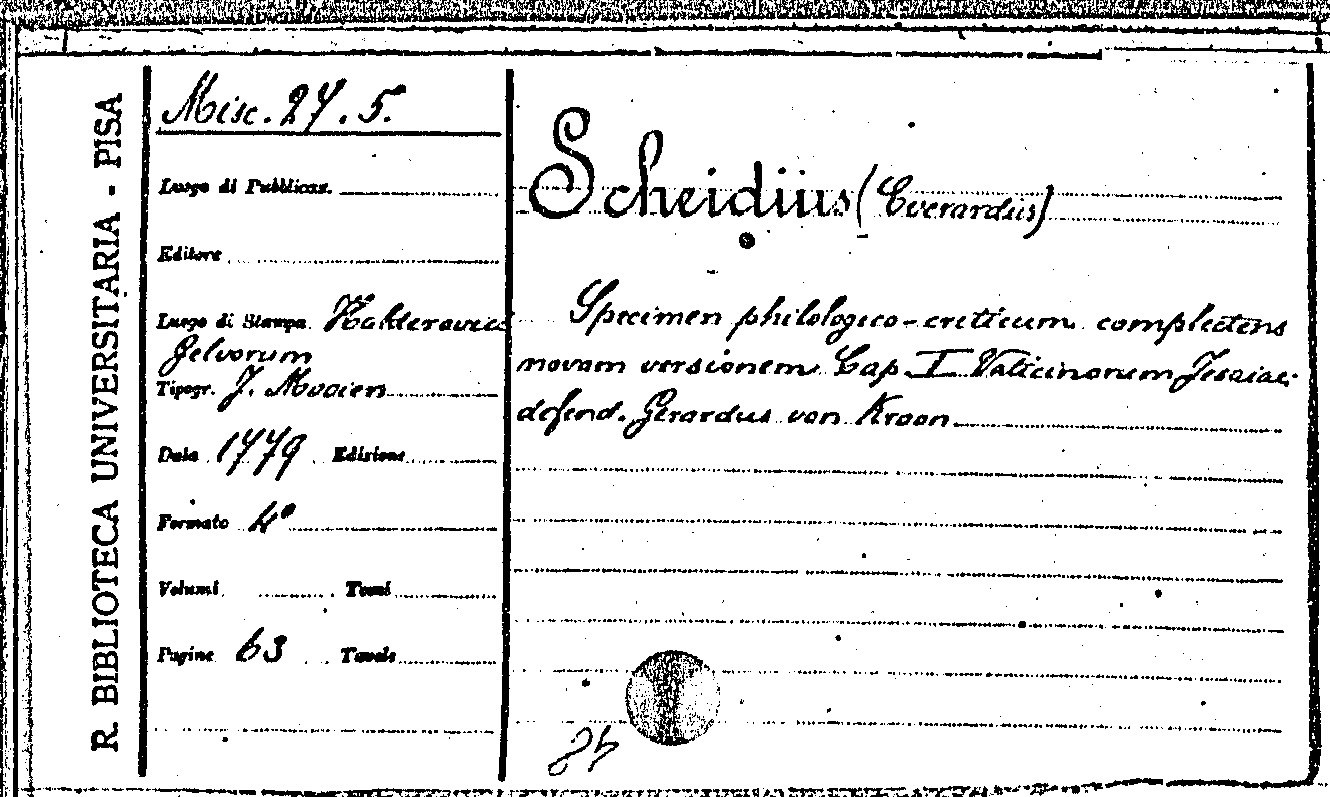 R. BIBLIOTECA UNIVERSITARIA - PISA
Misc. 27. 5.
Luogo di Pubblicaz.
Editore
Luogo di Stampa Harderavici
Gelrorum
Tipogr. J. Mooien
Data 1779 Edizione
Formato 4°
Volumi Tomi
Pagine 63 Tavole
Scheidius (Everardus)
Specimen philologico-criticum complectens
novam versionem Cap. I Vaticinorum Jesaiae:
defend. Gerardus van Kroon
84